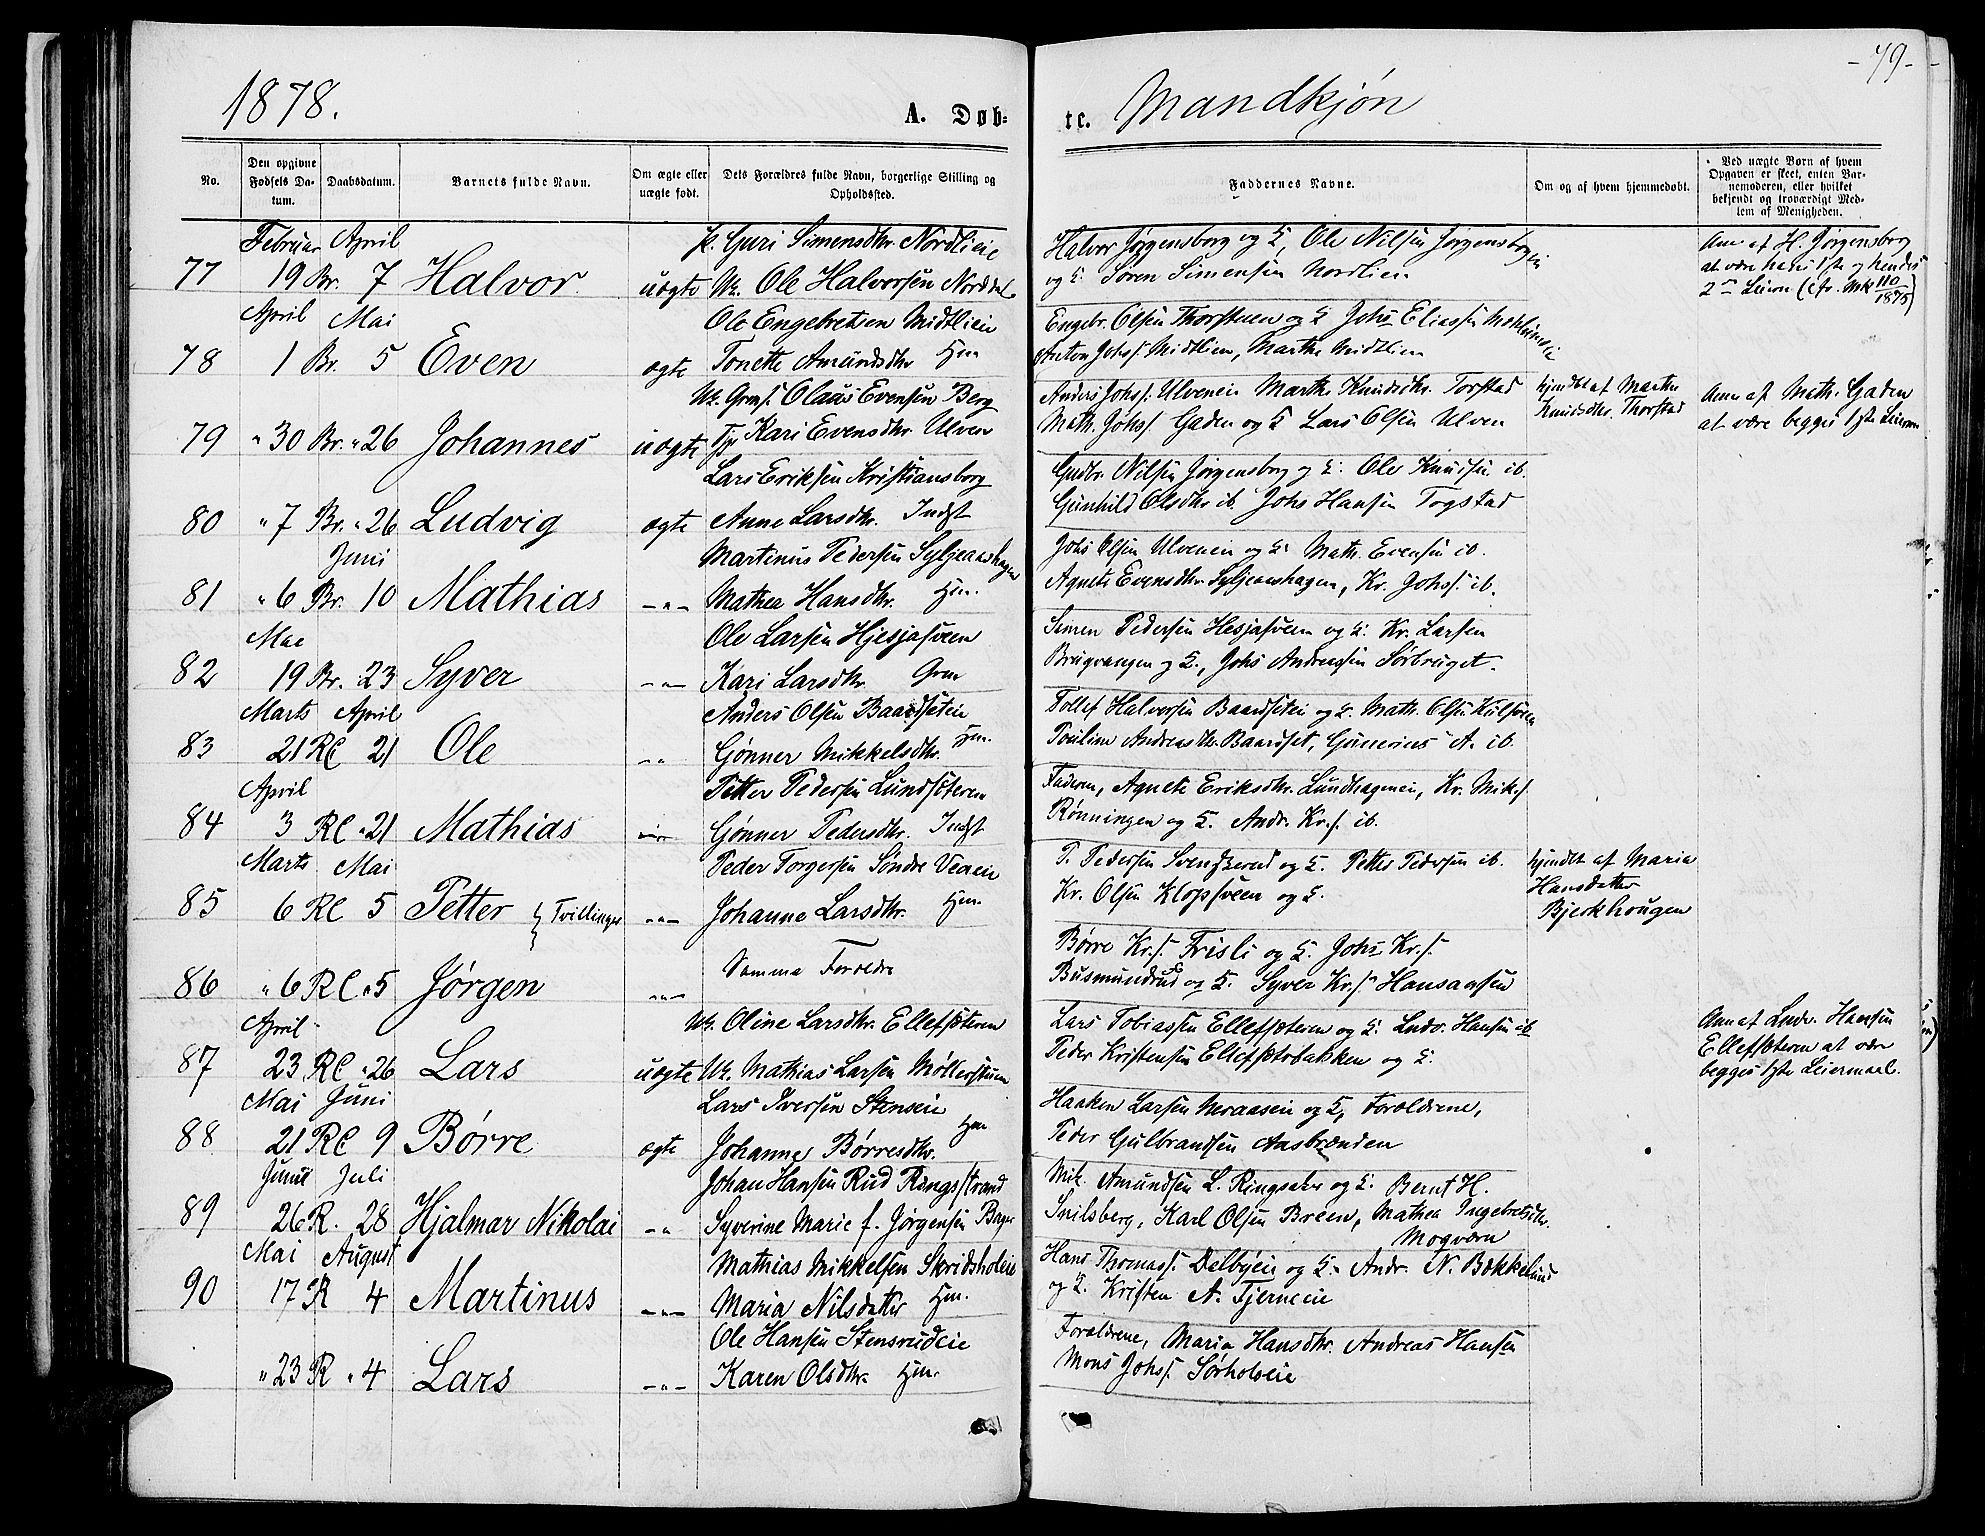 1878.
A. Døb-
te. Mandkjøn
-79-
No.
Den opgivne Fødsels Datum.
Daabsdatum.
Barnets fulde Navn.
Om ægte eller uægte født.
Dets Forældres fulde Navn, borgerlige Stilling og Opholdssted.
Faddernes Navne.
Om og af hvem hjemmedøbt.
Ved uægte Børn af hvem Opgaven er skeet, enten Barnemoderen, eller hvilket bekjendt og troværdigt Medlem af Menigheden.
Februar April
p. Guri Simensdtr. Nordlieie
Halvor Jørgensborg og H, Ole Nilsen Jørgensborg
Ann af H. Jørgensborg
77 19 Br. 7 Halvor uægte Uk. Ole Halvorsen Norddal
og H. Søren Simensen Nordlien
at være hans 1ste og hendes
2den Leierm (cfr. Mk 110/1875)
April Mai
Ole Engebretsen Midtlien
Engebr. Olsen Thorstuen og H Johs Eliassen
78 1 Br. 5 Even ægte Tonette Amundsdtr Hm
Anton Johs. Midtlien, Marthe Midtlien
Uk. Grms. Olaus Evensen Berg
Anders Johs. Ulveneie Marthe Knudsdtr. Torstad
hjmdbt af Marthe
Anm af Math. Gaden
79 " 30 Br. " 26 Johannes uægte Tp Kari Evensdtr. Ulven
Math. Johs. Gaden og H Lars Olsen Ulven
Knudsdtr. Thorstad
at være begges 1ste Leierm
Lars Eriksen Kristiansborg
Gudbr. Nilsen Jørgensborg og H. Ole Knudsen ib.
80 " 7 Br. " 26 Ludvig ægte Anne Larsdtr. Indst
Gunhild Olsdtr ib. Johs Hansen Togstad
Juni
Martinus Pedersen Syljeaashagen
Johs Olsen Ulveneie og H. Math. Evensen ib.
81 " 6 Br. 10 Mathias -"- Mathea Hansdtr. Hm.
Agnete Evensdtr. Syljeaashagen, Kr. Johs. ib.
Mai
Ole Larsen Hjesjasveen
Simen Pedersen Hesjasveen og H. Kr. Larsen
82 19 Br. 23 Syver -"- Kari Larsdtr. Grm
Brugvangen og H., Johs Andreassen Sørbruget.
Marts April
Anders Olsen Baardseteie
Tollef Halvorsen Baardseteie og H. Math. Olsen
83 21 RC 21 Ole -"- Gønner Mikkelsdtr. Hm.
Pouline Andreasdtr. Baardset, Gunerius A. ib.
April
Petter Pedersen Lundsæteren
Faderen, Agnete Eriksdtr. Lundhageneie, Kr. Mik.s.
84 3 RC " 21 Mathias -"- Gønner Pedersdtr. Indst
Rønningen og H. Andr. Kr.s. ib.
Marts Mai
Peder Torgersen Søndre Veaeie
P. Pedersen Svendserud og H. Petter Pedersen ib.
hjmdbt af Maria
85 6 RC 5 Petter } Tvillinger -"- Johanne Larsdtr. Hm.
Kr. Olsen Klopsveen og H.
Hansdatter
Bjerkhougen
Børre Kr.s. Frisli og H. Johs Kr.s.
Samme Forældre
86 " 6 RC. " 5 Jørgen -"-
Busmundrud og H. Syver Kr.s. Hansaasen
April
Uk. Oline Larsdtr. Ellefsæteren
Lars Tobiassen Ellefsæteren og H. Ludv. Hansen ib
Anm af Ludv. Hansen
87 23 RC " 26 Lars uægte Uk. Mathias Larsen Møllerstuen
Peder Kristensen Ellefsæterbakken og H.
Ellefsæteren at være
begges 1ste Leiermaal.
Mai Juni
Lars Iversen Stenseie
Haaken Larsen Neraaseie og H, Forældrene,
88 21 RC 9 Børre ægte Johanne Børresdtr. Hm
Peder Gulbrandsen Aasbrænden
Juni Juli
Johan Hansen Rud Ringsstrand
Mik. Amundsen L. Ringsaker og H. Bernt H.
89 26 R. 28 Hjalmar Nikolai -"- Syverine Marie f. Jørgensen Bager
Snilsberg, Karl Olsen Breen, Mathea Ingebretsdtr.
Mogværn
Mai August
Mathias Mikkelsen Skridsholeie
Hans Thomass. Dalbyeie og H. Andr. N. Bækkelund
90 17 R 4 Martinus -"- Maria Nilsdatter Hm.
og H. Kristen A. Tjerneie
Ole Hansen Stensrudeie
Forældrene, Maria Hansdtr. Andreas Hansen
" 23 R " 4 Lars -"- Karen Olsdtr. Hm.
Mons Johs. Sørholseie